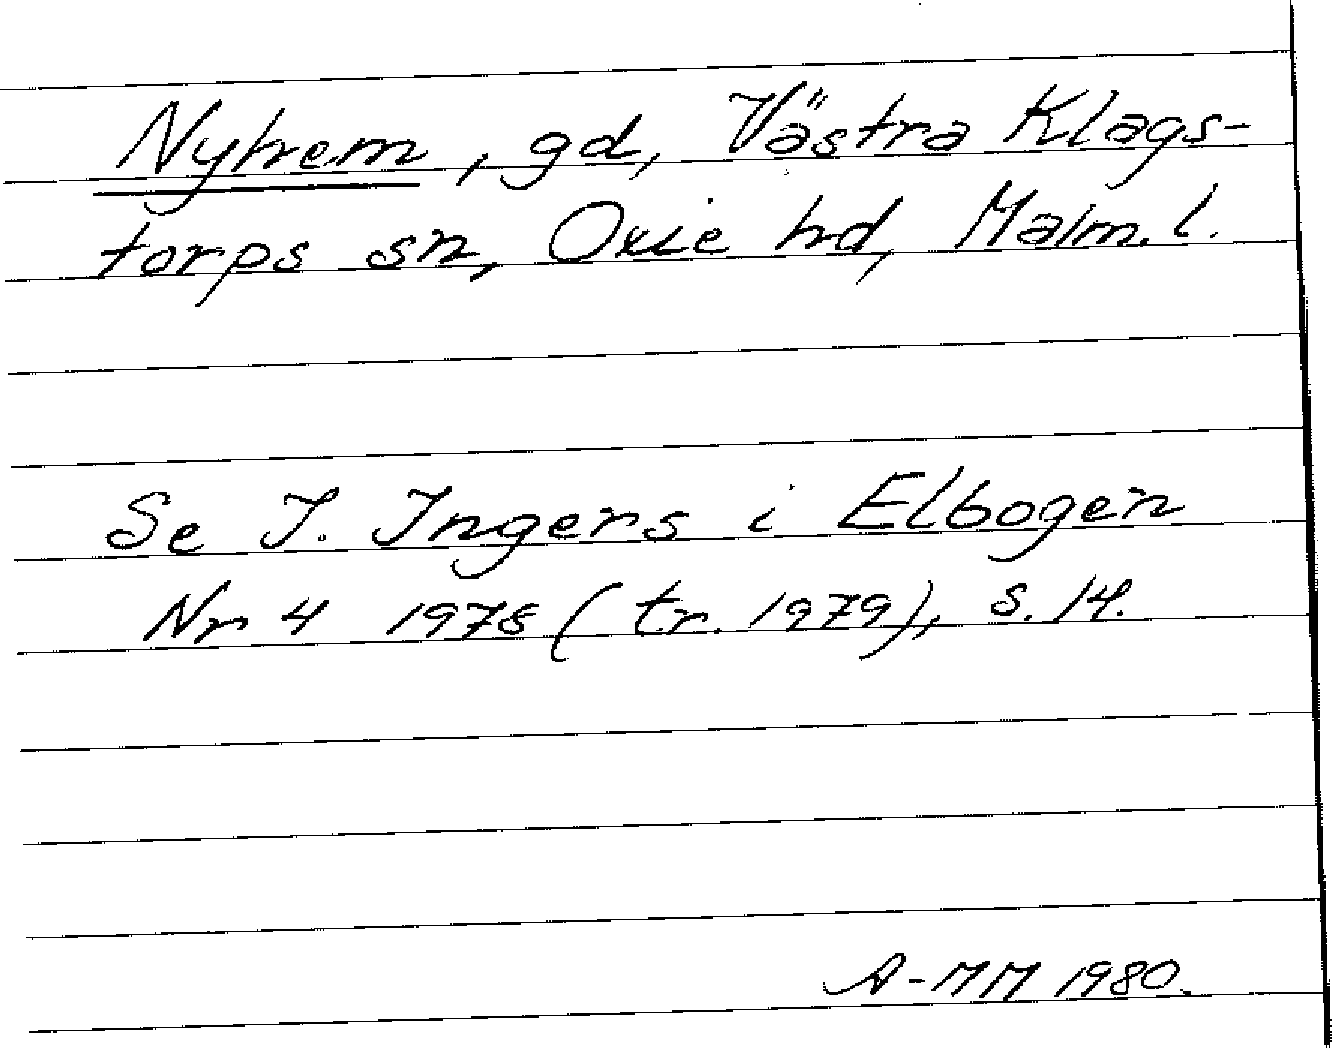 Nyhem, gd, Västra Klags-
torps sn, Oxie hd, Malm. l.
Se I. Ingers i Elbogen
Nr 4 1978 (tr. 1979), s. 14.
A-MM 1980.